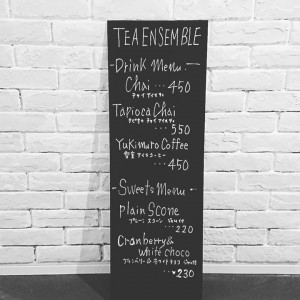 TEA ENSEMBLE
-Drink Menu-
Chai
チャイ アイスティ
...450
Tapioca Chai
タピオカ チャイ アイスティ
...550
Yukimuro Coffee
雪室 アイスコーヒー
...450
-Sweets Menu-
plain Scone
プレーン スコーン
...220
Cranberry &
white choco
クランベリー & ホワイトチョコ
230